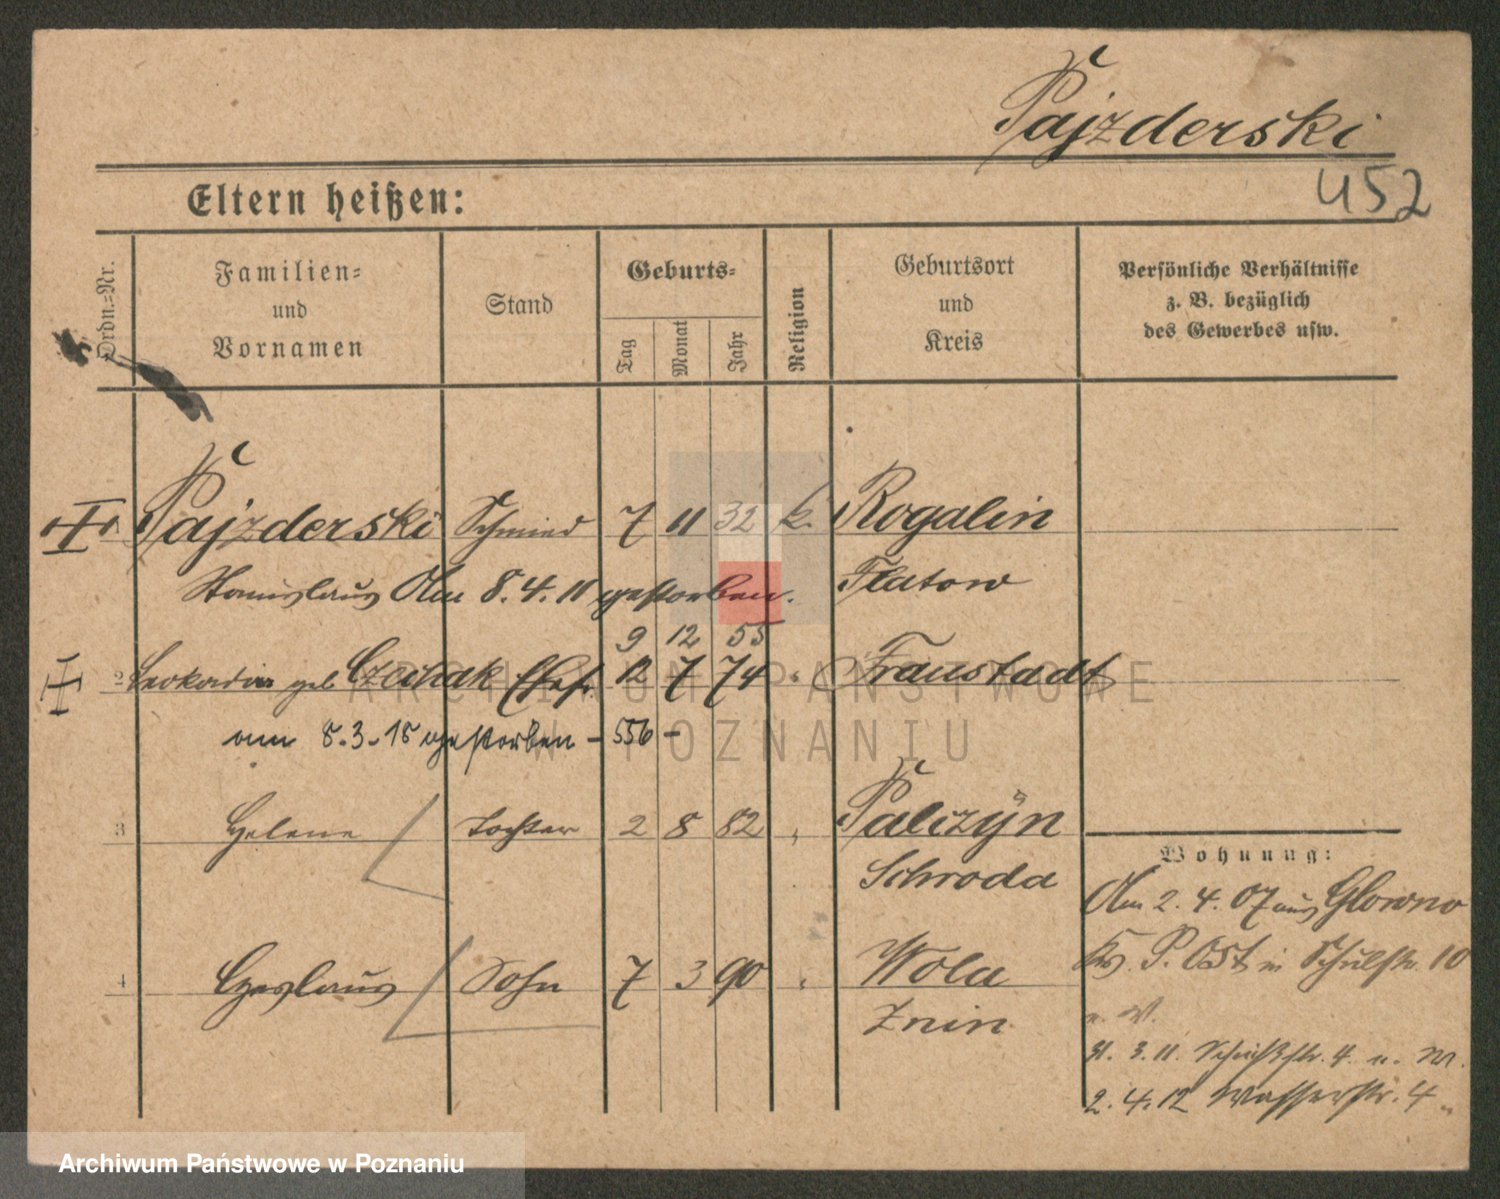 Pajzderski
452
Eltern heißen:
Ordn.=Nr.
Familien=
und
Vornamen
Stand
Geburts=
Tag
Monat
Jahr
Religion
Geburtsort
und
Kreis
Persönliche Verhältnisse
z. B. bezüglich
des Gewerbes usw.
Pajzderski Schmied 7 11 32 k. Rogalin
Stanislaus Am 8.4.11 gestorben. Flatow
9 12 55
2 Leokadia geb Czechak Ehefr. 12 7 74 " Fraustadt
am 8.3.18 gestorben - 556 -
3 Helene Tochter 2 8 82 " Palczÿn
Schroda
4 Czeslaus Sohn 7 3 90 " Wola
Znin
Wohnung:
Am 2. 4. 07 aus Glowno
Kr. P. Ost in Schulstr. 10
n. W.
31. 3. 11. 4. n. W.
2. 4. 12 Wasserstr. 4 "
ARCHIWUM PAŃSTWOWE
W POZNANIU
Archiwum Państwowe w Poznaniu